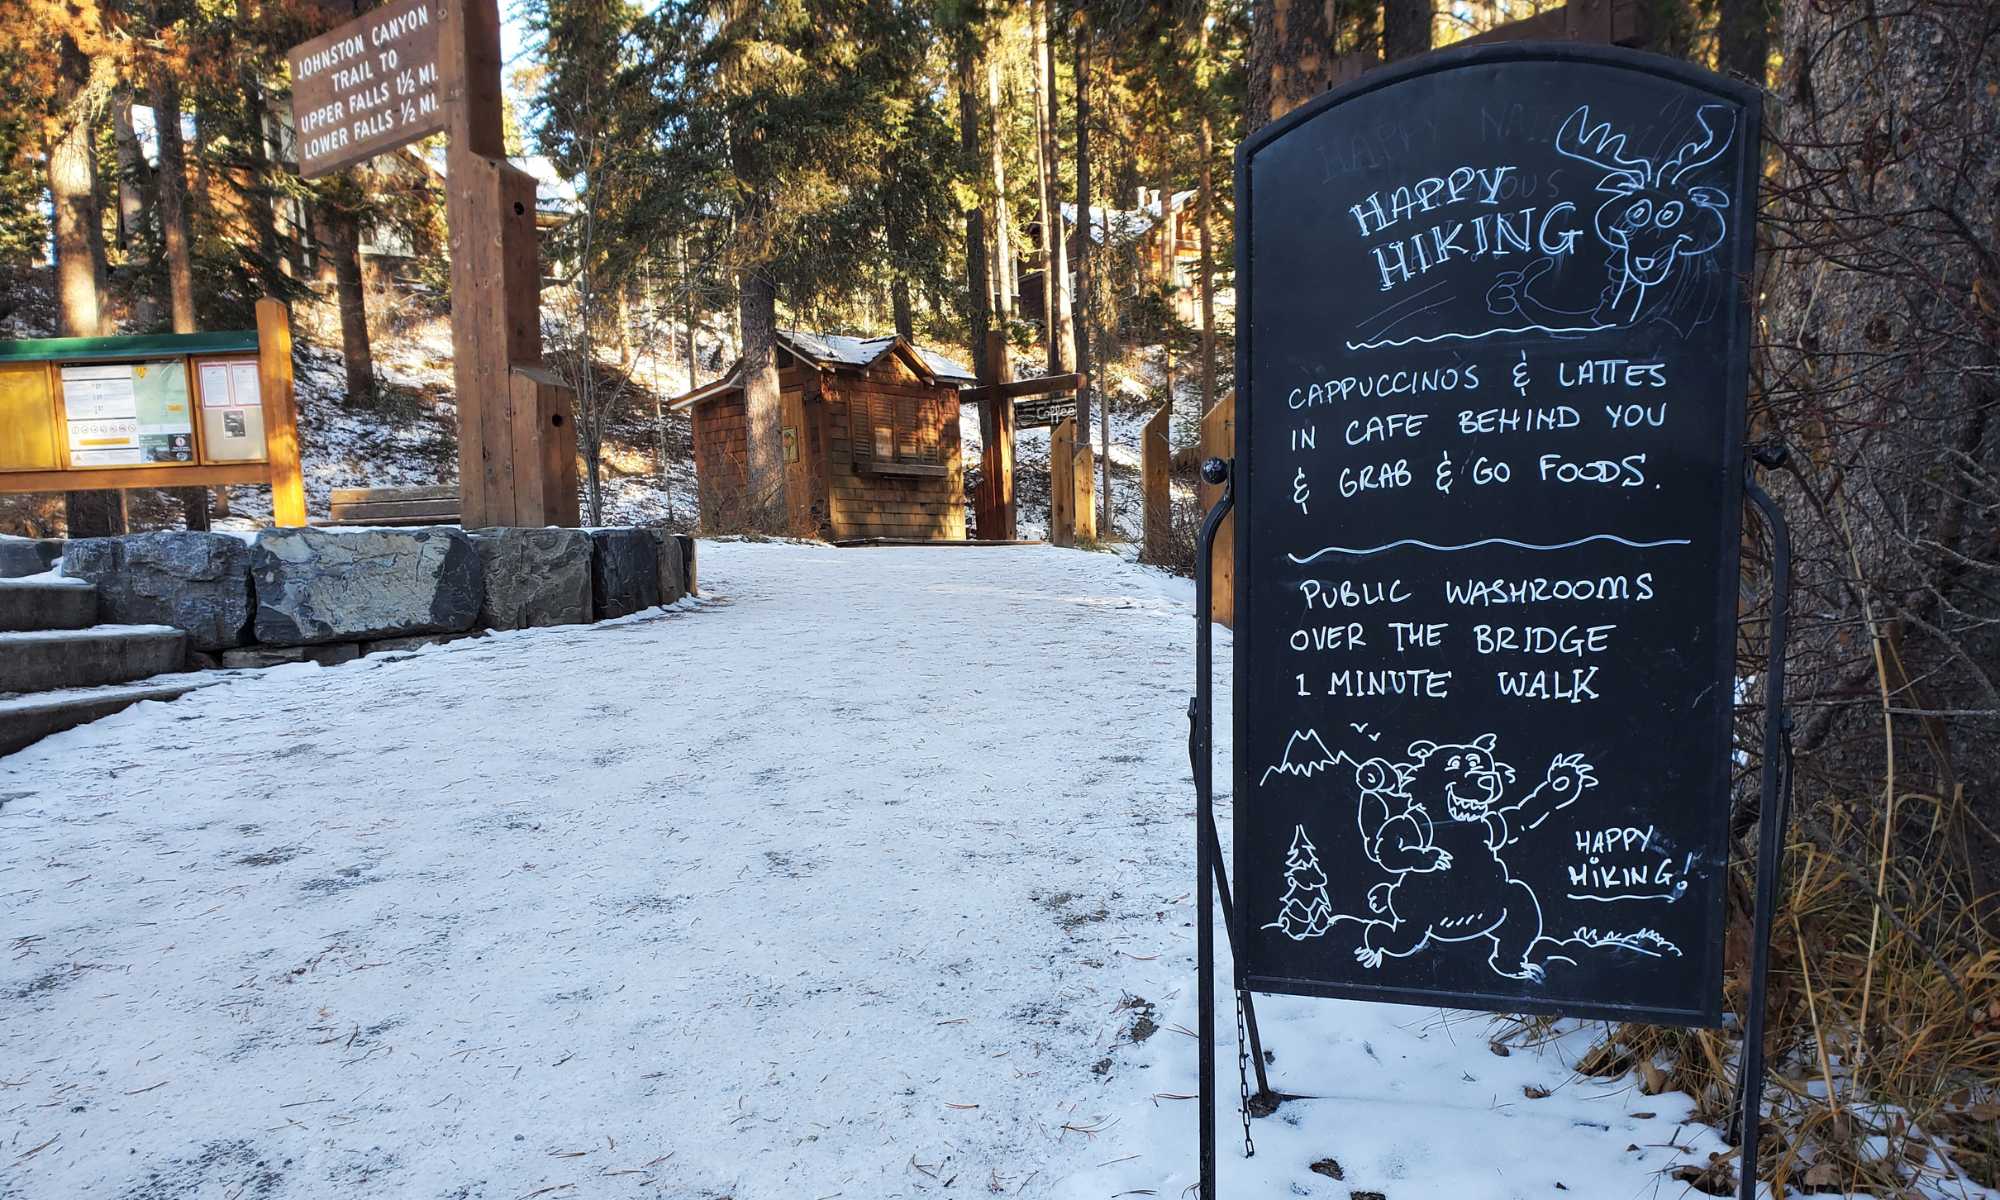 JOHNSTON CANYON
TRAIL TO
UPPER FALLS 1½ MI.
LOWER FALLS ½ MI.
Coffee
HAPPY
HIKING
CAPPUCCINOS & LATTES
IN CAFE BEHIND YOU
& GRAB & GO FOODS.
PUBLIC WASHROOMS
OVER THE BRIDGE
1 MINUTE WALK
HAPPY
HIKING!